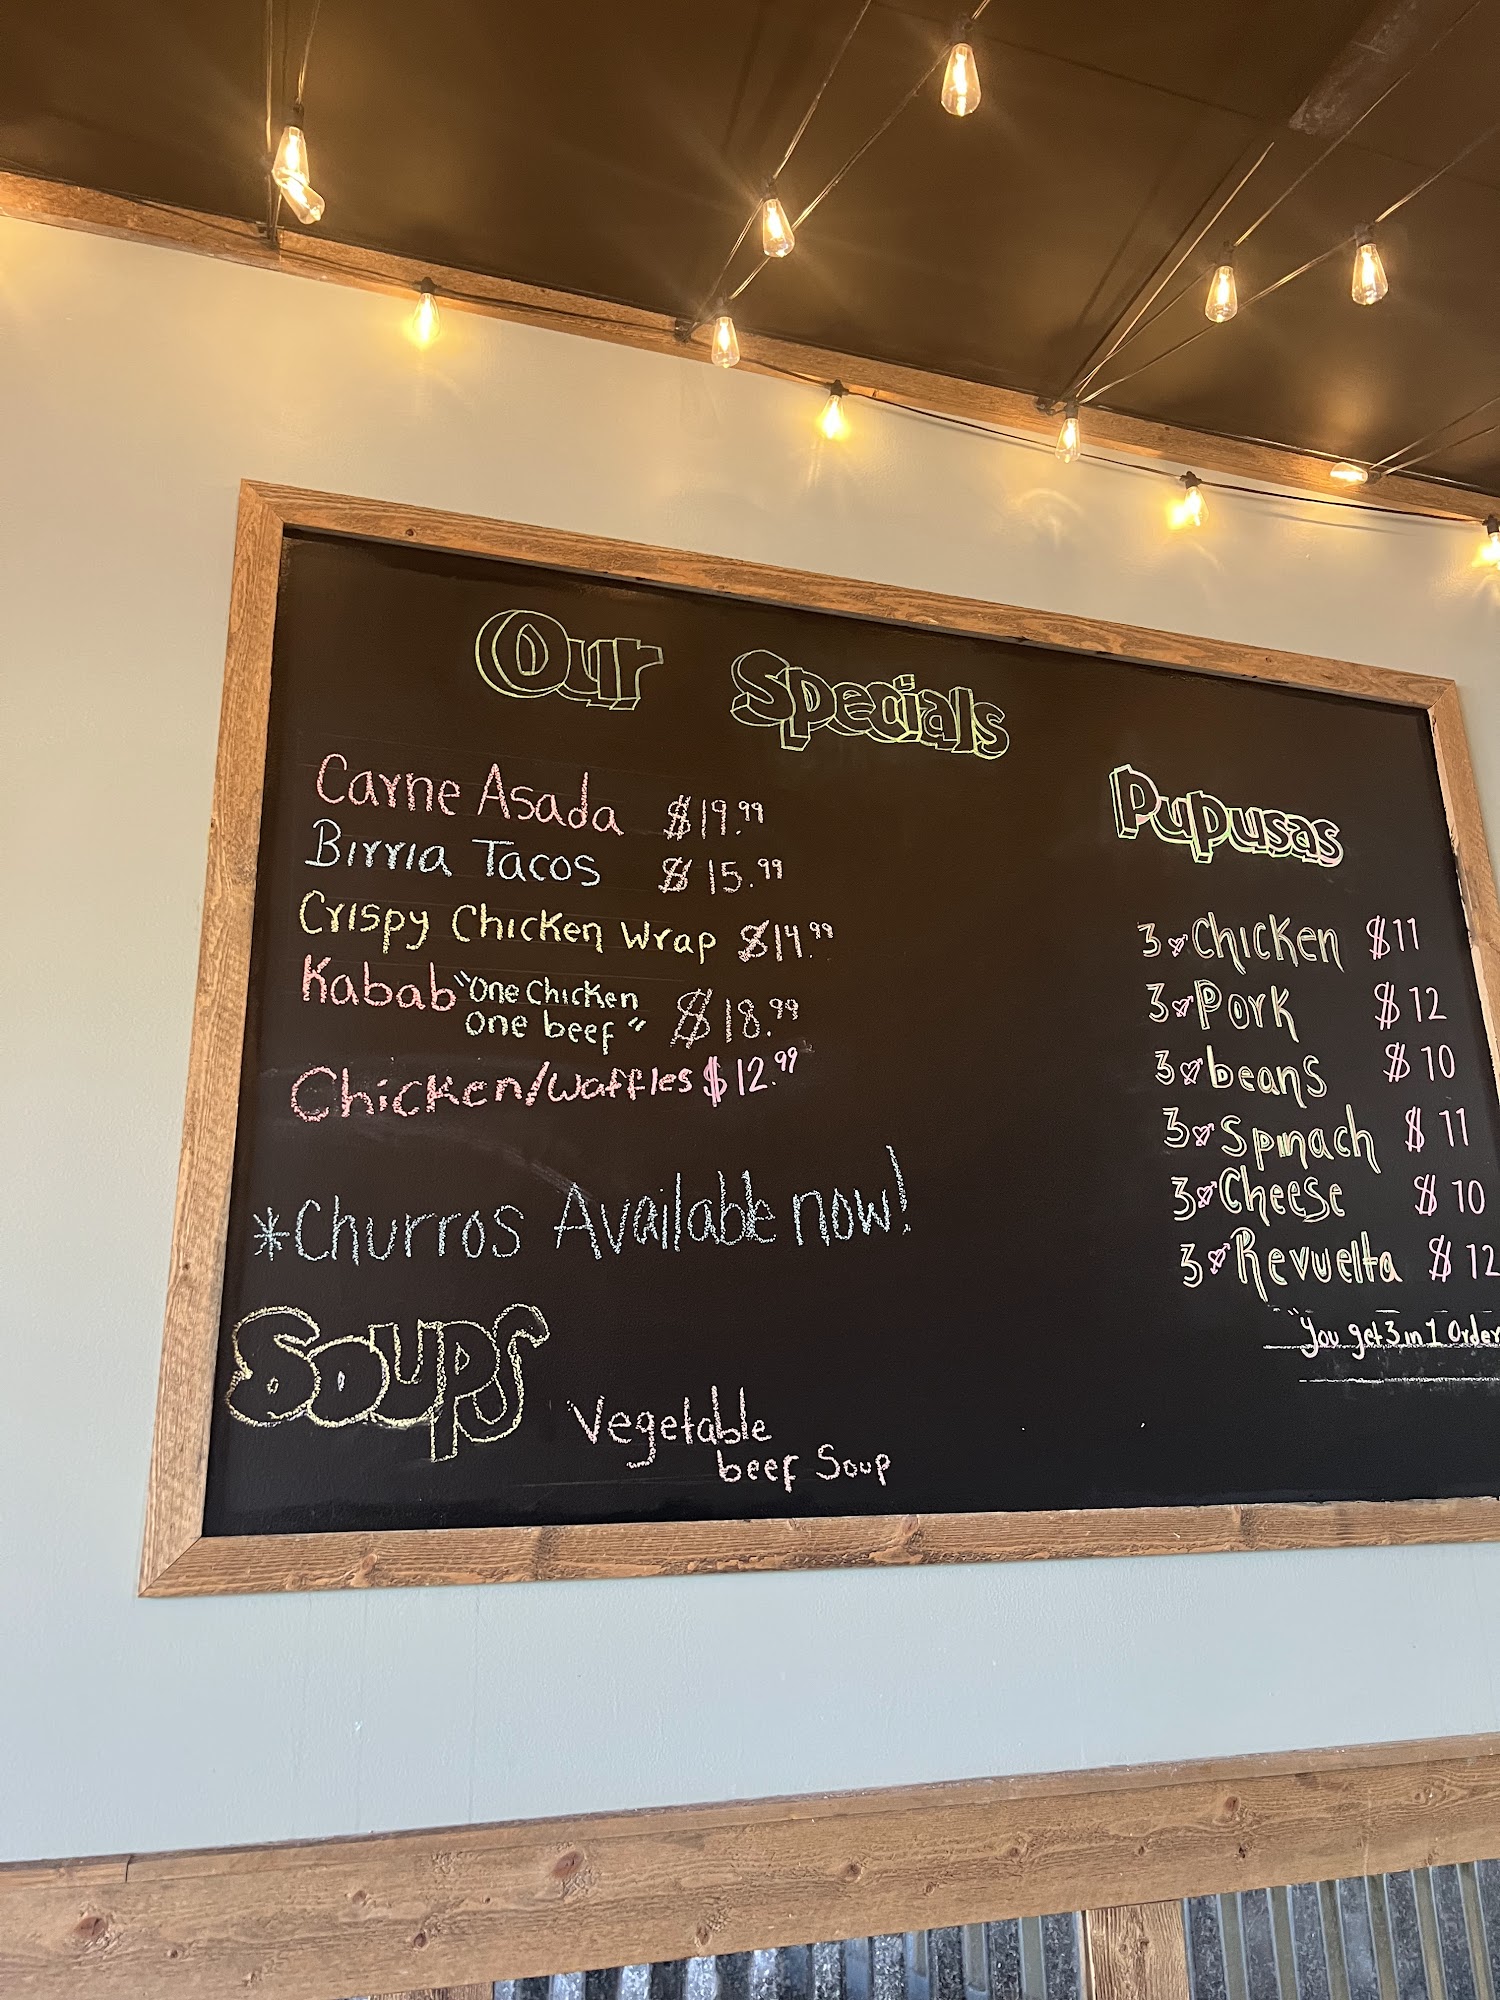 Our Specials
Carne Asada $19.99
Birria Tacos $15.99
Crispy Chicken Wrap $14.99
Kabab "One Chicken
One beef" $18.99
Chicken/Waffles $12.99
*Churros Available now!
Soups
Vegetable
beef Soup
Pupusas
3 Chicken $11
3 Pork $12
3 beans $10
3 Spinach $11
3 Cheese $10
3 Revuelta $12
"You get 3 in 1 Order